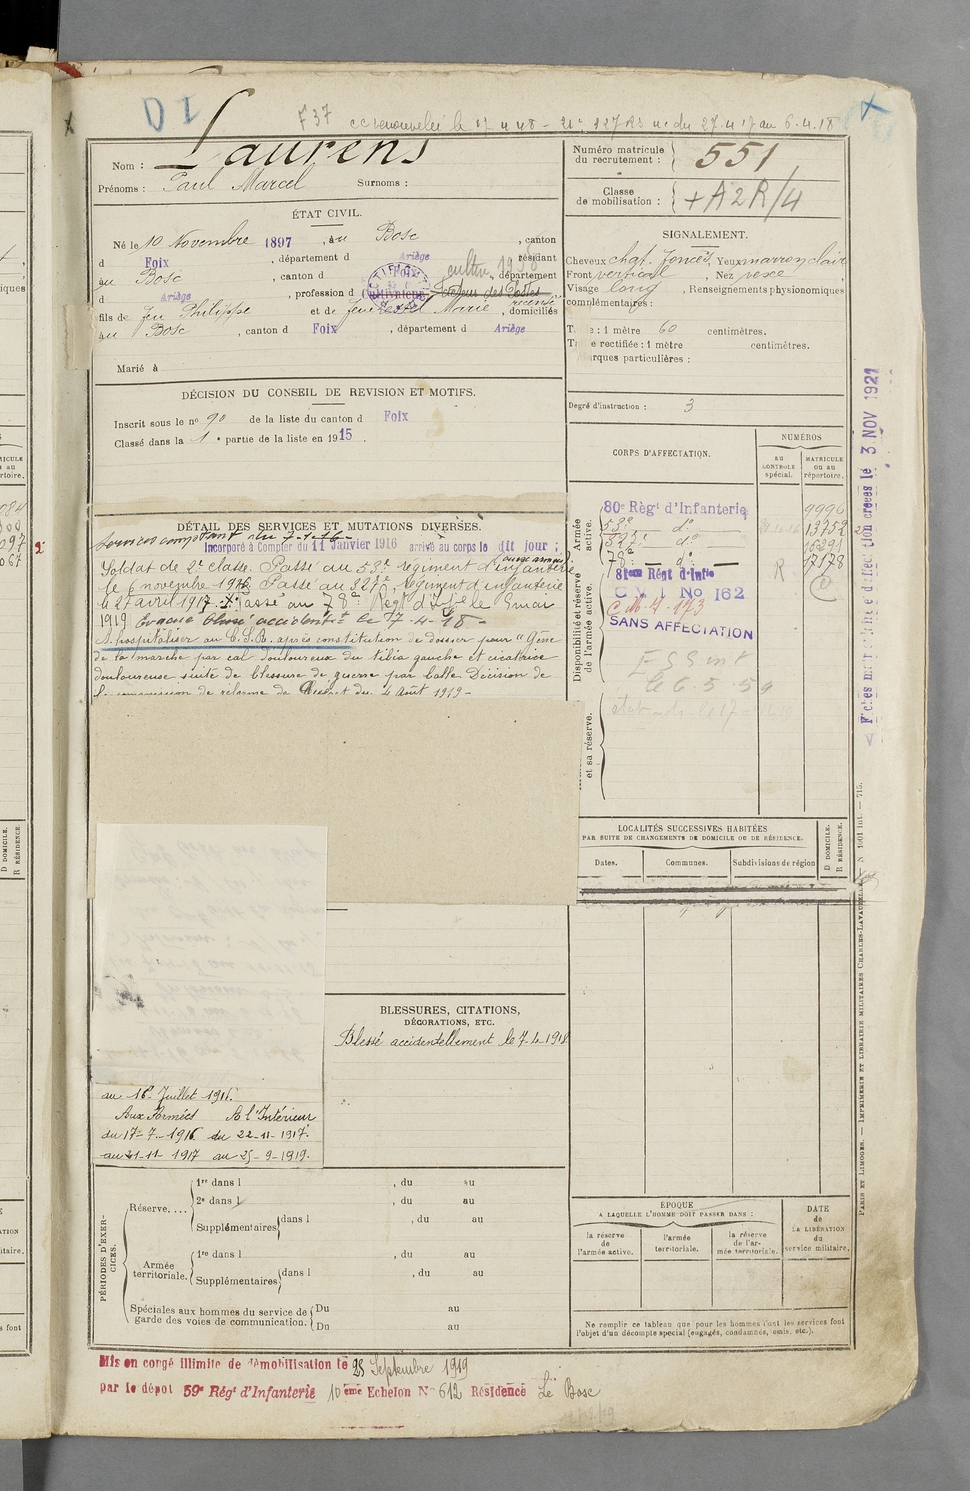 D I
F 37
Nom : Laurens
Prénoms : Paul Marcel Surnoms :
Numéro matricule du recrutement : 551
Classe de mobilisation : + A 2 R/4
ÉTAT CIVIL.
Né le 10 Novembre 1897, à au Bosc, canton
d Foix, département d Ariège, résidant
au Bosc, canton d Foix, département
d Ariège, profession d Cultivateur Facteur des Postes
cultiv. 1938
fils de feu Philippe et de Marie, domiciliés
au Bosc, canton d Foix, département d Ariège
Marié à
SIGNALEMENT.
Cheveux chat. foncés, Yeux marron clair
Front vertical, Nez vexe
Visage long, Renseignements physionomiques
complémentaires :
T e : 1 mètre 60 centimètres.
T e rectifiée : 1 mètre centimètres.
arques particulières :
Degré d'instruction : 3
DÉCISION DU CONSEIL DE REVISION ET MOTIFS.
Inscrit sous le n° 90 de la liste du canton d Foix
Classé dans la 1e partie de la liste en 1915.
CORPS D'AFFECTATION.
NUMÉROS
au CONTROLE spécial.
MATRICULE ou au répertoire.
Armée active.
80e Règt d'Infanterie
53e do
327e do
78e do
81ème Régt d'Infie
C M I No 162
C.M.I. 173
SANS AFFECTATION
Disponibilité et réserve de l'armée active.
et sa réserve.
9996
13752
17178
R
DÉTAIL DES SERVICES ET MUTATIONS DIVERSES.
Services comptant du 7-1-16
Incorporé à Compter du 11 Janvier 1916 arrivé au corps le dit jour ;
Soldat de 2e classe. Passé au 53e régiment d'infanterie
le 6 novembre 1916. Passé au 327e régiment d'infanterie
le 27 avril 1917. Passé au 78e Régt d'Iie le 8 mai
1919 Evacué blessé accidentt le 7-4-18 -
A hospitaliser au C.S.R. après constitution de dossier pour "Gêne
de la marche par cal douloureux du tibia gauche et cicatrice
douloureuse suite de blessure de guerre par balle Décision de
commission de réforme de du 4 Août 1919 -
LOCALITÉS SUCCESSIVES HABITÉES
PAR SUITE DE CHANGEMENTS DE DOMICILE OU DE RÉSIDENCE.
Dates.
Communes.
Subdivisions de région
D DOMICILE.
R RÉSIDENCE.
BLESSURES, CITATIONS,
DÉCORATIONS, ETC.
Blessé accidentellement le 7-4-1918
au 16 Juillet 1916.
Aux Armées A l'Intérieur
du 17-7-1916 du 22-11-1917.
au 21-11-1917 au 25-9-1919.
PÉRIODES D'EXERCICES.
Réserve....
1re dans l , du au
2e dans l , du au
Supplémentaires dans l , du au
Armée territoriale.
1re dans l , du au
Supplémentaires dans l , du au
Spéciales aux hommes du service de garde des voies de communication.
Du au
Du au
EPOQUE
A LAQUELLE L'HOMME DOIT PASSER DANS :
la réserve de l'armée active.
l'armée territoriale.
la réserve de l'armée territoriale.
DATE de LA LIBÉRATION du service militaire.
Ne remplir ce tableau que pour les hommes dont les services font
l'objet d'un décompte spécial (engagés, condamnés, omis, etc.).
Mis en congé illimité de démobilisation le 25 Septembre 1919
par le dépot 59e Régt d'Infanterie 10 ème Echelon N° 612 Résidence Le Bosc
3 NOV 1921
PARIS ET LIMOGES. — IMPRIMERIE ET LIBRAIRIE MILITAIRES CHARLES-LAVAUZELLE